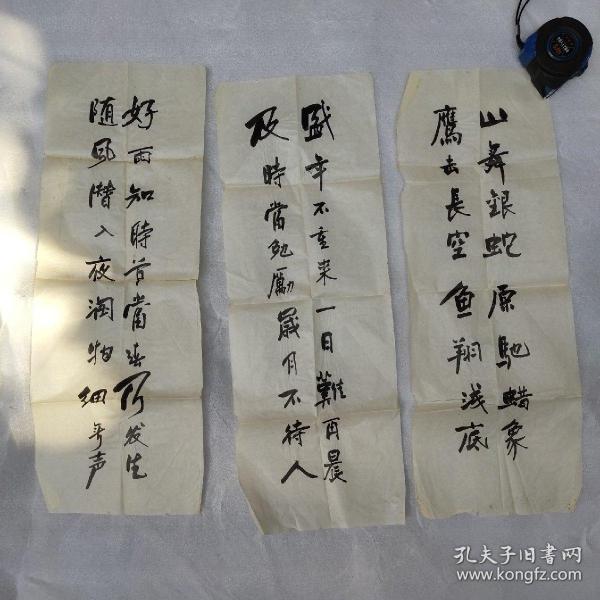 山舞銀蛇原馳蜡象
鷹去長空魚翔浅底
盛年不重来一日難再晨
及時當勉勵歲月不待人
好雨知時节當春乃发生
随風潜入夜润物细无声
孔夫子旧书网
www.kongfz.com